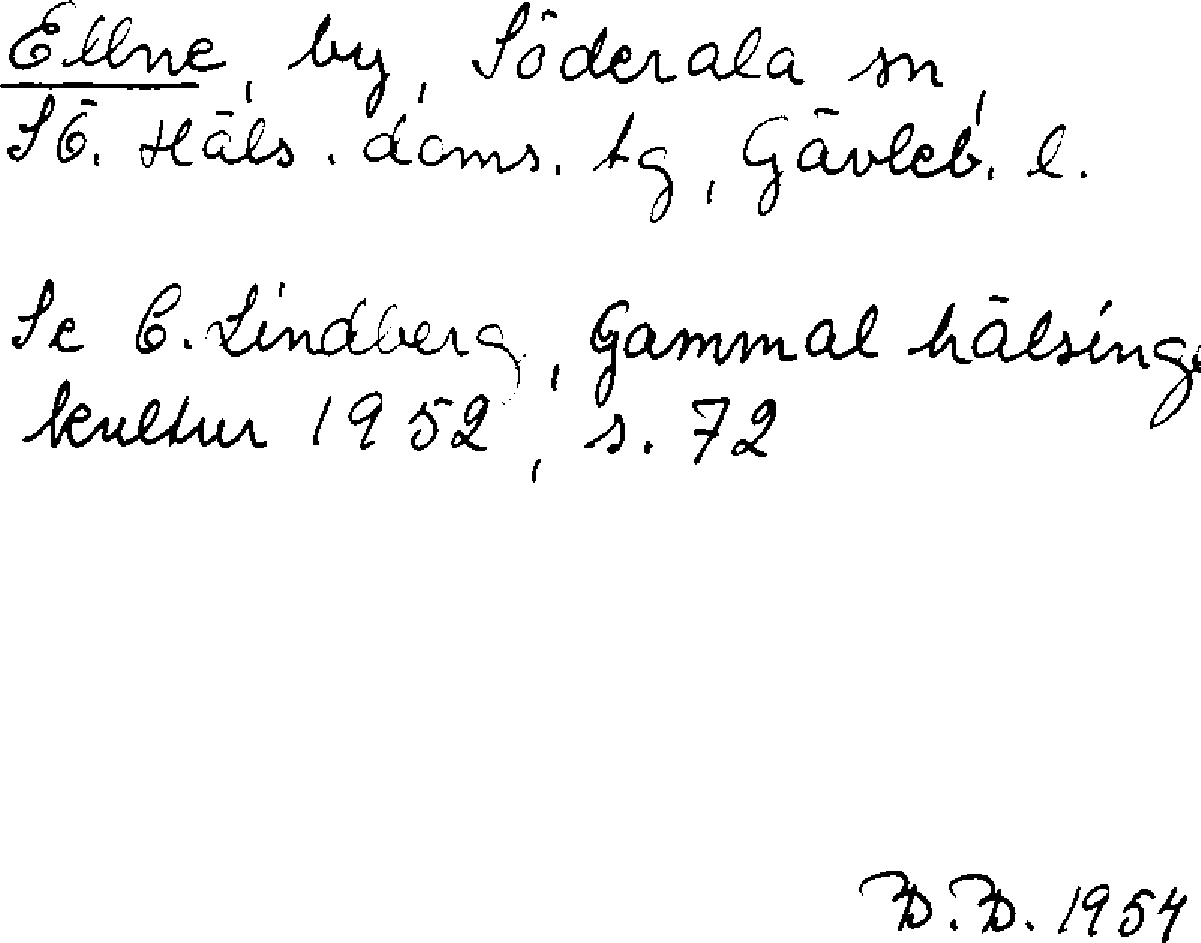 Ellne, by, Söderala sn,
SÖ. Häls. doms. tg, Gävleb. l.
Se C. Lindberg, Gammal hälsinge
kultur 1952, s. 72
B.B. 1954